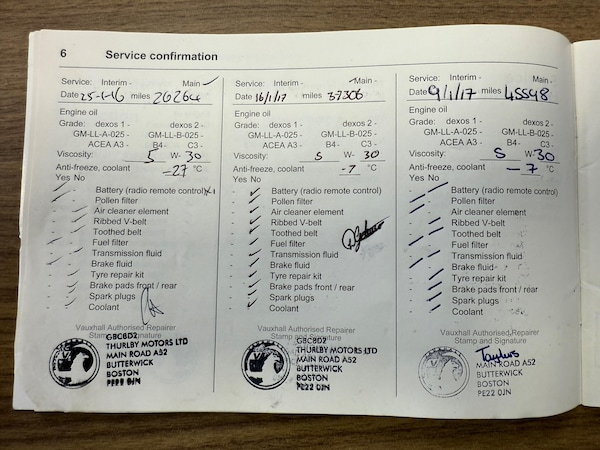 6 Service confirmation
Service: Interim - Main -
Date 25-1-16 miles 26264
Engine oil
Grade: dexos 1 - dexos 2 -
GM-LL-A-025 - GM-LL-B-025 -
ACEA A3 - B4- C3 -
Viscosity: 5 W- 30
Anti-freeze, coolant -27 °C
Yes No
- - Battery (radio remote control)
- - Pollen filter
- - Air cleaner element
- - Ribbed V-belt
- - Toothed belt
- - Fuel filter
- - Transmission fluid
- - Brake fluid
- - Tyre repair kit
- - Brake pads front / rear
- - Spark plugs
- - Coolant
Vauxhall Authorised Repairer
Stamp and Signature
GBC8D2
THURLBY MOTORS LTD
MAIN ROAD A52
BUTTERWICK
BOSTON
PE22 0JN
Service: Interim - Main -
Date 16/1/17 miles 37306
Engine oil
Grade: dexos 1 - dexos 2 -
GM-LL-A-025 - GM-LL-B-025 -
ACEA A3 - B4- C3 -
Viscosity: 5 W- 30
Anti-freeze, coolant -7 °C
Yes No
- - Battery (radio remote control)
- - Pollen filter
- - Air cleaner element
- - Ribbed V-belt
- - Toothed belt
- - Fuel filter
- - Transmission fluid
- - Brake fluid
- - Tyre repair kit
- - Brake pads front / rear
- - Spark plugs
- - Coolant
Vauxhall Authorised Repairer
Stamp and Signature
GBC8D2
THURLBY MOTORS LTD
MAIN ROAD A52
BUTTERWICK
BOSTON
PE22 0JN
Service: Interim - Main -
Date 9/1/17 miles 45598
Engine oil
Grade: dexos 1 - dexos 2 -
GM-LL-A-025 - GM-LL-B-025 -
ACEA A3 - B4- C3 -
Viscosity: 5 W- 30
Anti-freeze, coolant -7 °C
Yes No
- - Battery (radio remote control)
- - Pollen filter
- - Air cleaner element
- - Ribbed V-belt
- - Toothed belt
- - Fuel filter
- - Transmission fluid
- - Brake fluid
- - Tyre repair kit
- - Brake pads front / rear
- - Spark plugs
- - Coolant
Vauxhall Authorised Repairer
Stamp and Signature
MAIN ROAD A52
BUTTERWICK
BOSTON
PE22 0JN